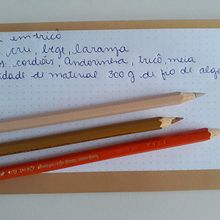 em tricô
cru, bege, laranja
cordões, Andorinha, tricô, meia
dade de material 300g de fio de algo